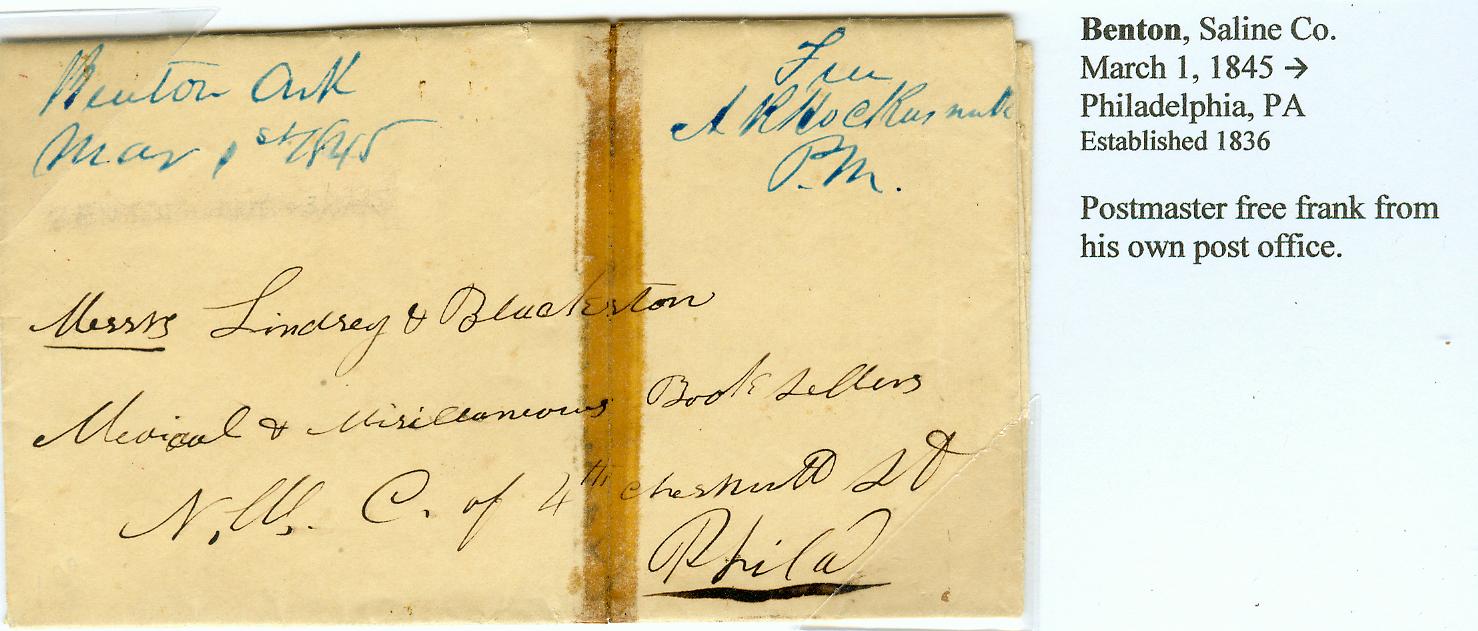 Benton Ark
Mar 1st 1845
Free
P.M.
Messrs Lindsey & Blackston
Medical & Miscillaneous Book Sellers
N.W. C. of 4th Chesnutt St
Phila
Benton, Saline Co.
March 1, 1845 →
Philadelphia, PA
Established 1836
Postmaster free frank from
his own post office.